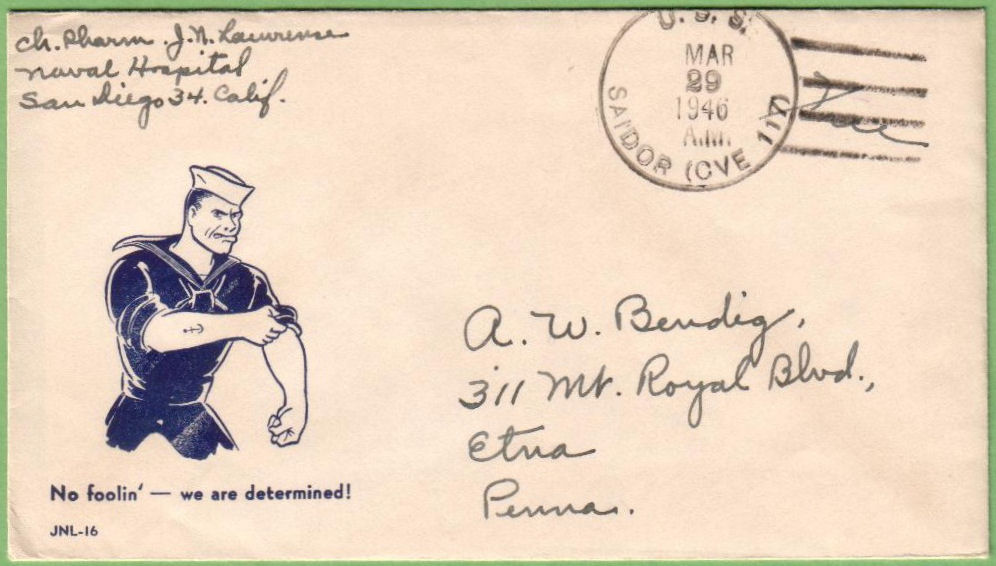 Ch. Pharm J.N. Lawrense
Naval Hospital
San Diego 34. Calif.
U. S. S.
MAR
29
1946
A.M.
SAIDOR (CVE 117)
Free
A. W. Bendig,
311 Mt. Royal Blvd.,
Etna
Penna.
No foolin' — we are determined!
JNL-16